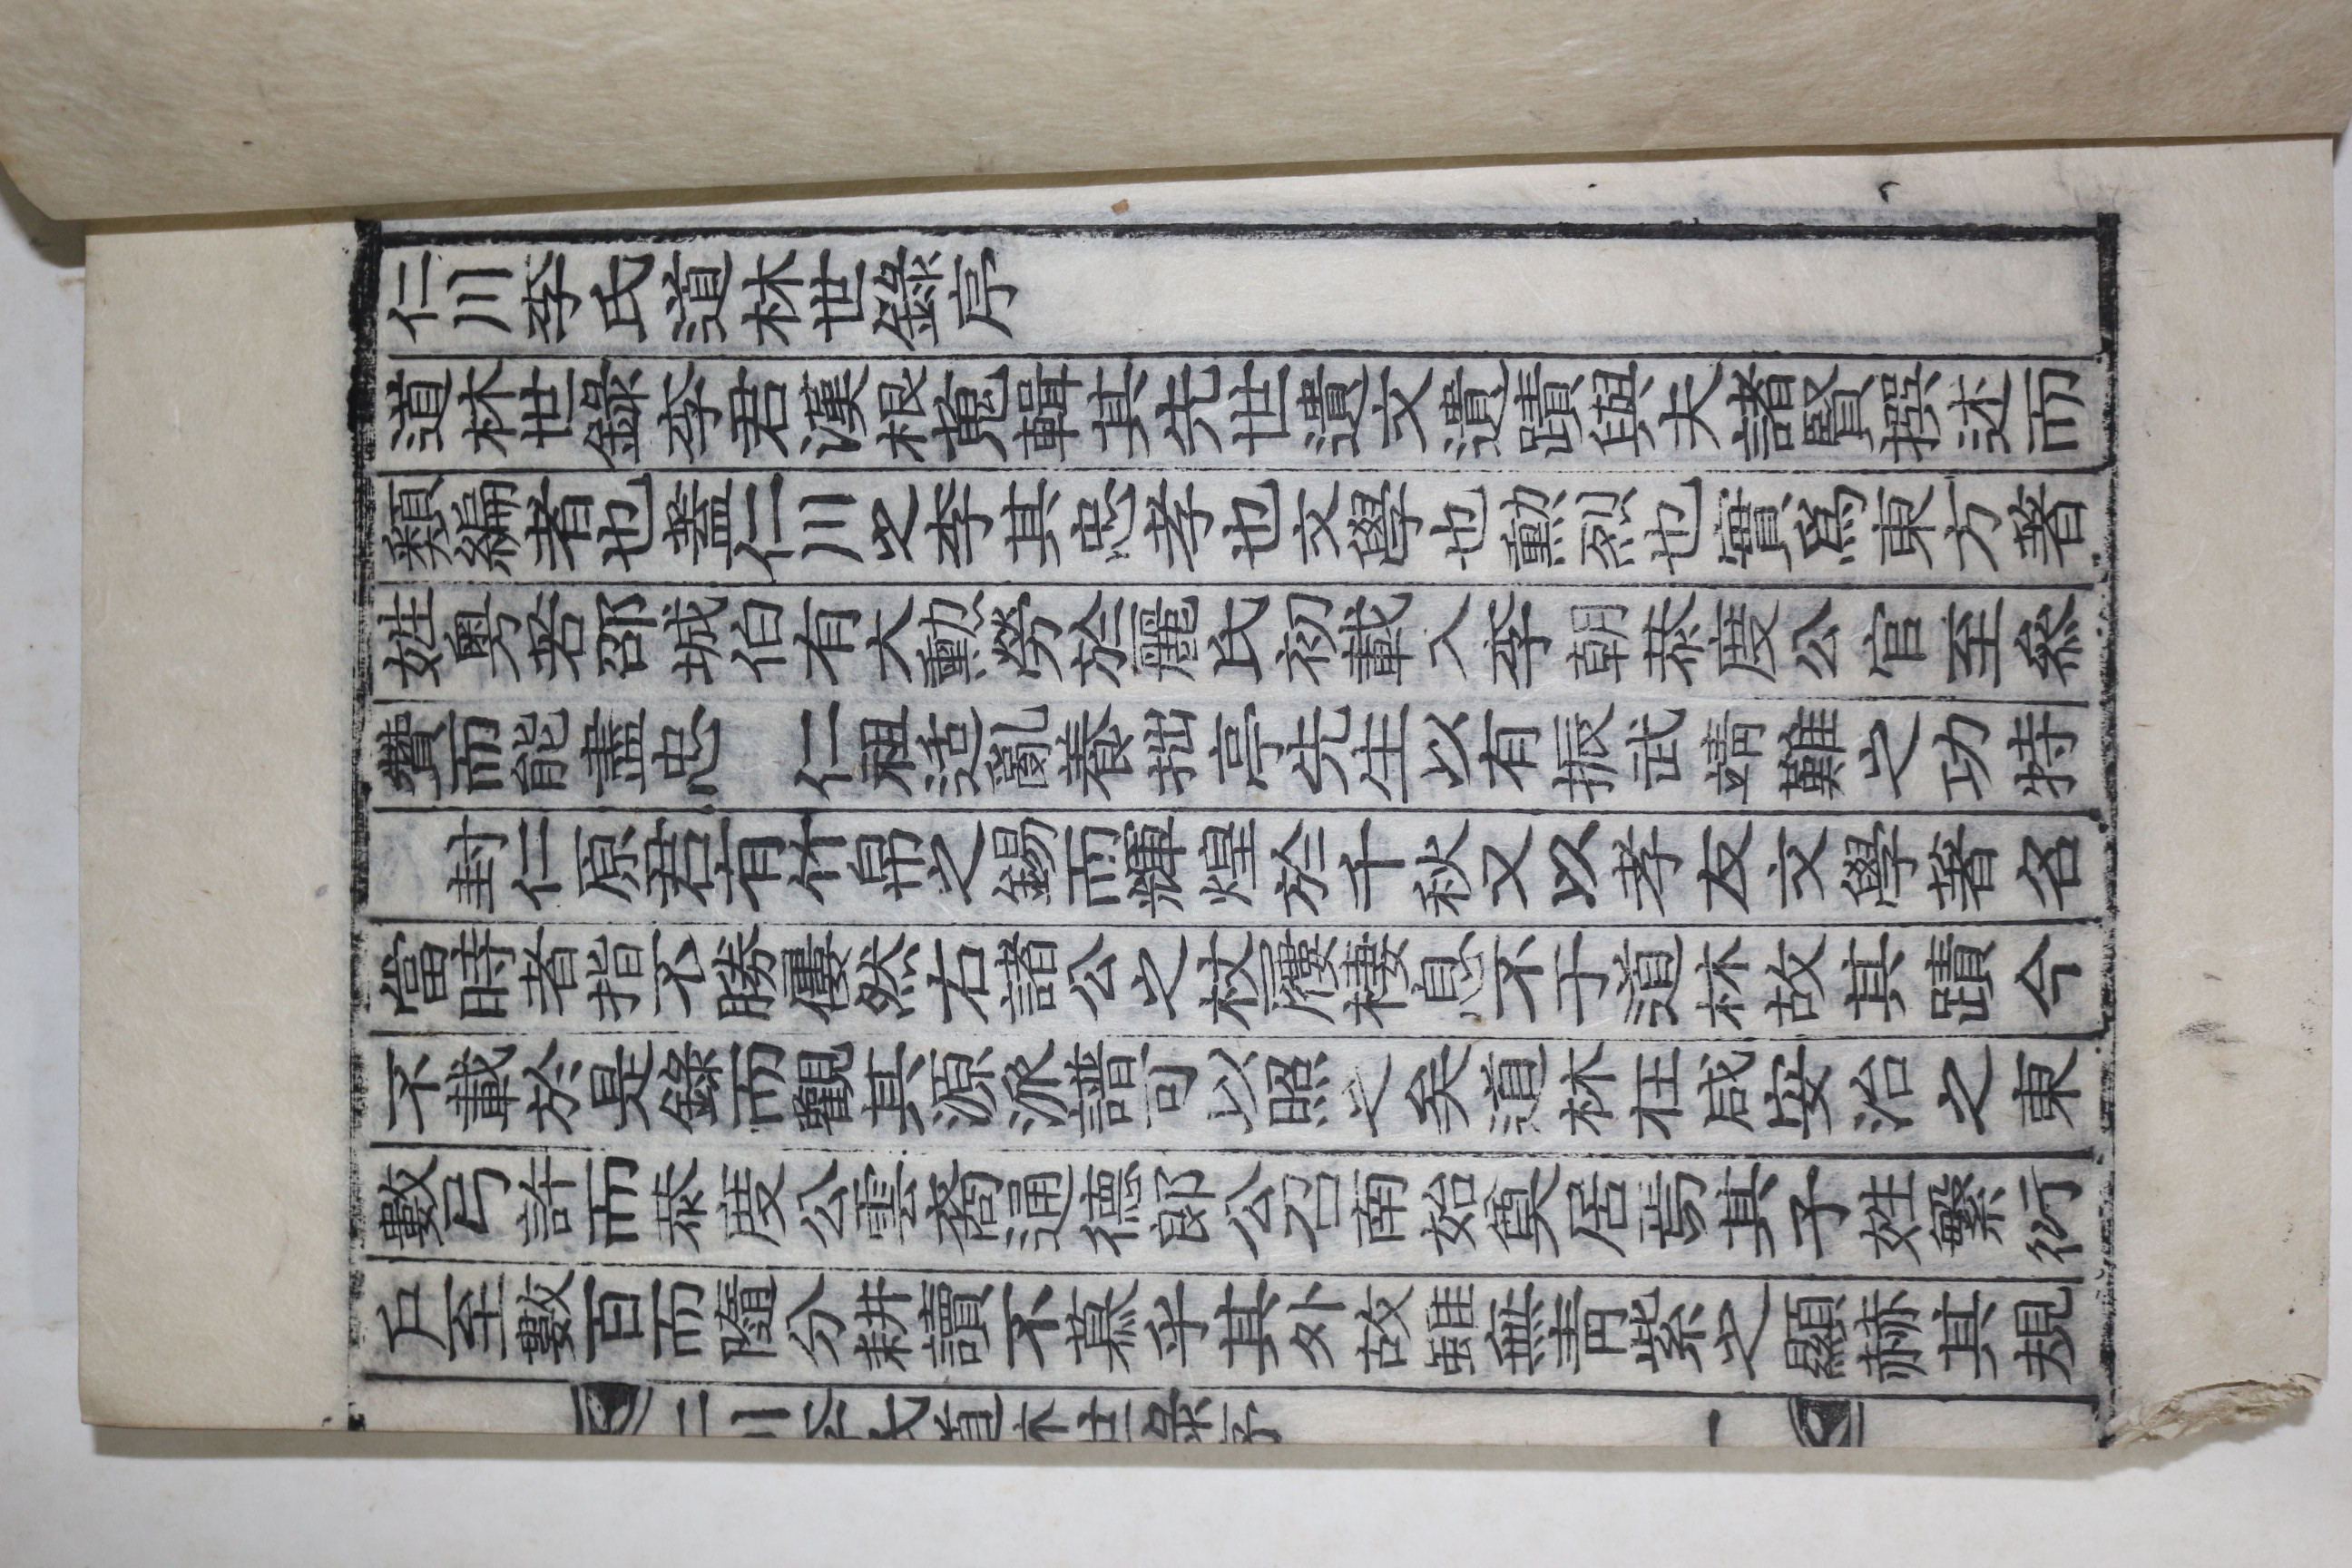 仁川李氏道林世錄序
道林世錄李君漢根蒐輯其先世遺文遺蹟與夫諸賢撰述而
類編者也蓋仁川之李其忠孝也文學也勳烈也實爲東方著
姓粤若邵城伯有大勳勞於麗氏初載入李朝恭度公官至參
贊而能盡忠　仁祖适亂養拙亭先生以有振武靖難之功特
封仁原君有竹帛之錫而輝煌於千秋又以孝友文學著名
當時者指不勝僂然右諸公之杖屨棲息不于道林故其蹟今
不載於是錄而觀其源派譜可以照之矣道林在咸安治之東
數弓許而恭度公雲裔通德郎公召南始奠居焉其子姓繁衍
戶至數百而隨分耕讀不慕乎其外故雖無靑紫之顯赫其規
仁川李氏道林世錄序　一